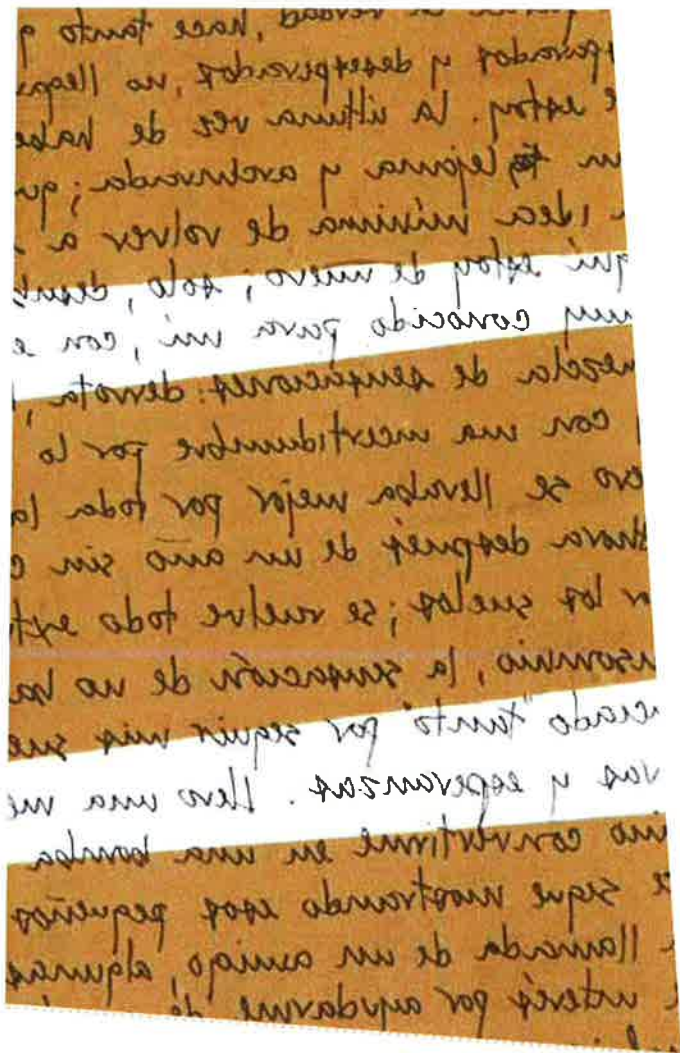 la verdad, hace tanto q
y desesperados, no llega
estoy. la última vez de habe
un lejana y archivada; qu
idea mínima de volver a
quí estoy de nuevo; solo,
muy conocido para mí, con e
mezcla de sensaciones: derrota,
con una incertidumbre por lo
ero se llevaba mejor por toda la
Ahora después de un año sin c
r los suelos; se vuelve todo
nsomnio, la sensación de no ha
ciado "tanto" por seguir mis sue
ras y esperanzas. Llevo una me
convertirme en una bomba
e sigue mostrando esos pequeños
llamada de un amigo, algunas
interés por ayudarme de